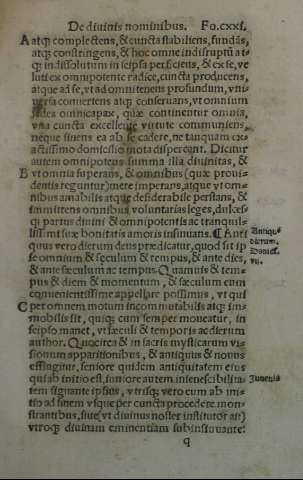 De diuinis nominibus. Fo.cxxi.
A atq; complectens, & cuncta stabiliens, fundās,
atq; constringens, & hoc omne indisruptū at-
q; indissolutum in seipsa perficiens, & ex se, ve
luti ex omnipotente radice, cuncta producens,
atque ad se, vt ad omnitenens profundum, vni-
uersa conuertens atq; conseruans, vt omnium
sedes omnicapax, quæ continentur omnia,
vna cuncta excellente virtute communiens,
neque sinens ea ab se cadere, ne tanquam ex
actissimo domicilio mota dispereant. Dicitur
autem omnipotens summa illa diuinitas, &
B vt omnia superans, & omnibus (quæ proui-
dentia reguntur) mere imperans, atque vt om-
nibus amabilis atque desiderabile perstans, &
immittens omnibus voluntarias leges, dulces-
q; partus diuini & omnipotentis ac tranquil-
lissimi suæ bonitatis amoris insinuans. ¶ Anti
quus vero dierum deus prædicatur, quod sit ip
se omnium & sæculum & tempus, & ante dies,
& ante sæculum ac tempus. Quamuis & tem-
pus & diem & momentum, & sæculum eum
conuenientissime appellare possimus, vt qui
C per omnem motum incommutabilis atq; im-
mobilis sit, quiq; cum semper moueatur, in
seipso manet, vt sæculi & temporis ac dierum
author. Quocirca & in sacris mysticarum vi-
sionum apparitionibus, & antiquus & nouus
effingitur, seniore quidem antiquitatem eius
qui ab initio est, iuniore autem insenescibilita-
tem signante ipsius, vtrisq; vero eum ab ini-
tio ad finem vsque per cuncta procedere mon-
strantibus, siue (vt diuinus noster institutor ait)
vtroq; diuinam eminentiam subinsinuante:
q
Antiquus
dierum.
Daniel.
vii.
Iuuenis